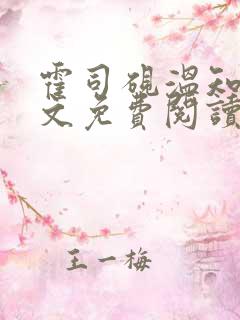 霍司砚溫知
文免費閱讀
王一梅